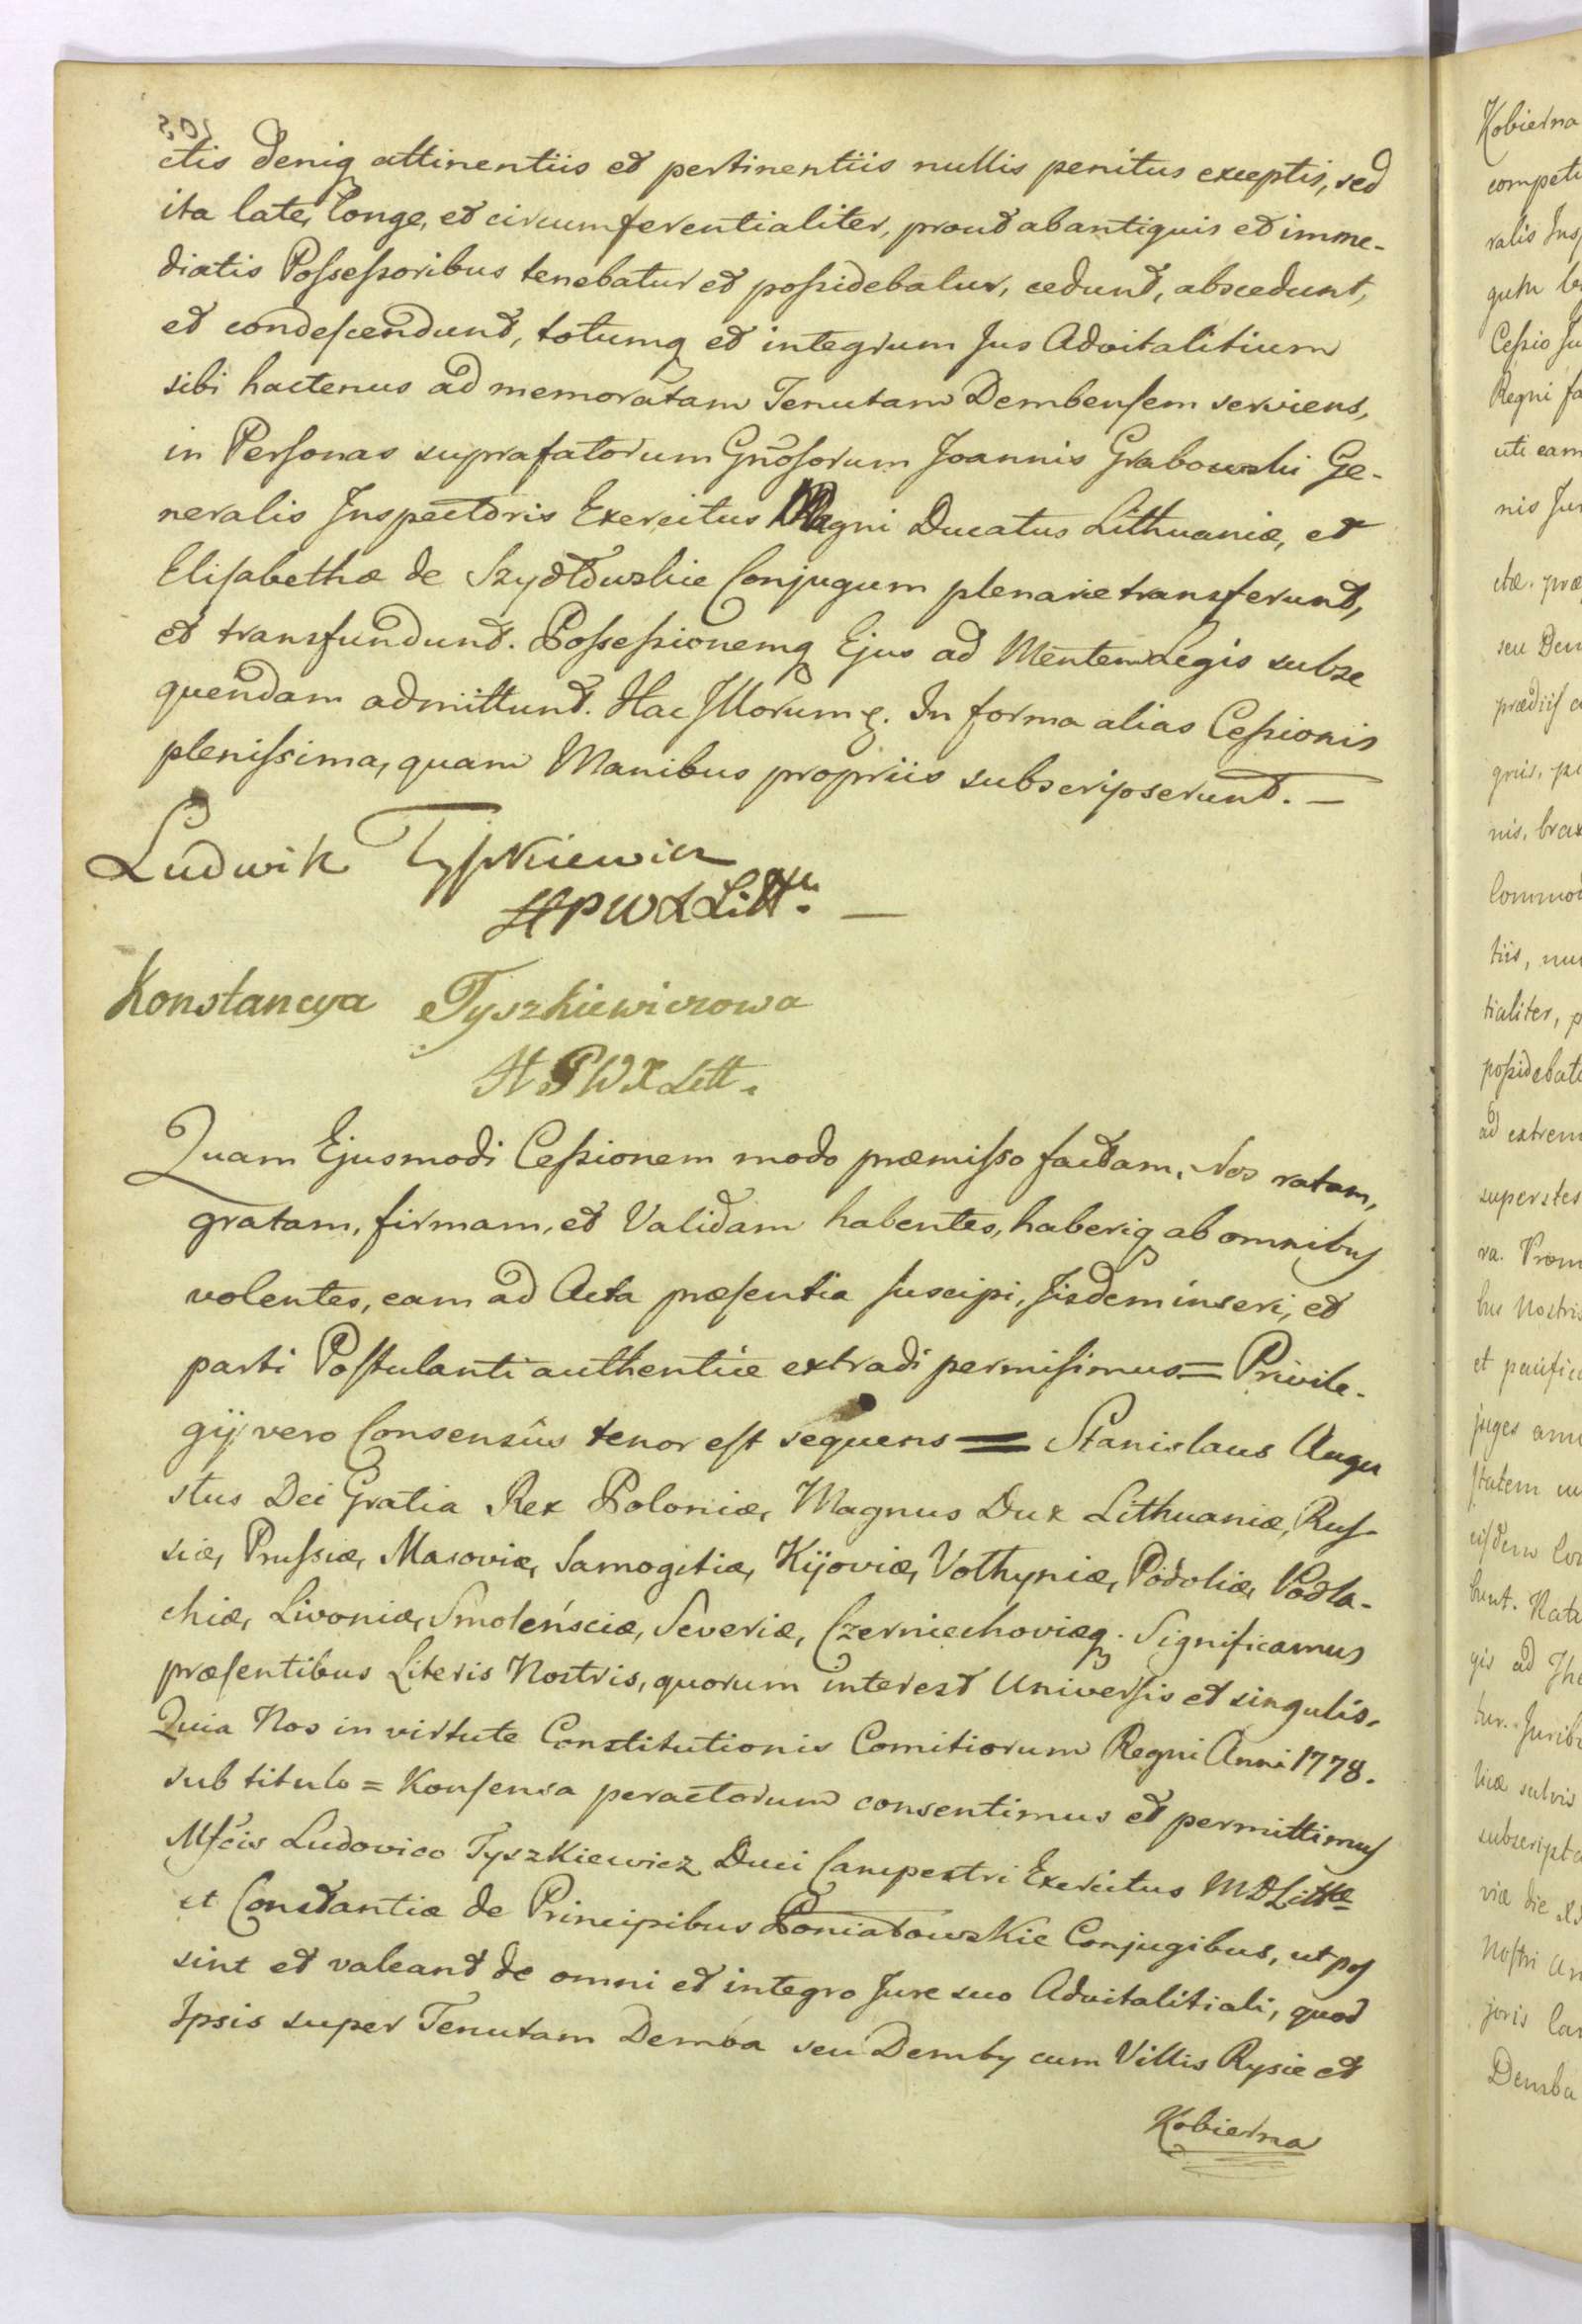 ctis deniq attinentiis et pertinentiis nullis penitus exceptis, sed
ita late, longe, et circumferentialiter, prout ab antiquis et imme-
diatis Poſseſsoribus tenebatur et poſsidebatur, cedunt, abscedunt,
et condeſcendunt, totumq et integrum Jus Advitalitium
sibi hactenus ad memoratam Tenutam Dembenſem serviens,
in Perſonas suprafatorum Gnõſorum Joannis Grabowski Ge-
neralis Inspectoris Exercitus Magni Ducatus Lithuaniæ, et
Eliſabethæ de Szydłowskie Conjugum plenarie transferunt,
et transfundunt. Poſseſsionemq Ejus ad Mentem Legis subse
quendam admittunt. Hac Illorumq. In forma alias Ceſsionis
pleniſsima, quam Manibus propriis subscripserunt. —
Ludwik Tyſzkiewicz
HPWXLitt. —
Konstancya Tyszkiewiczowa
HPWXLitt.
Quam Ejusmodi Ceſsionem modo præmiſso factam, Nos ratam,
gratam, firmam, et Validam habentes, haberiq ab omnibuſ
volentes, eam ad Acta præſentia ſuscipi, Iisdem inseri, et
parti Poſtulanti authentice extradi permiſimus = Privile-
gij vero Consensûs tenor eſt sequens = Stanislaus Augu
stus Dei Gratia Rex Poloniæ, Magnus Dux Lithuaniæ, Ruſ-
siæ, Pruſsiæ, Masoviæ, Samogitiæ, Kijoviæ, Volhyniæ, Podoliæ, Podla-
chiæ, Livoniæ, Smoleńsciæ, Severiæ, Czerniechoviæq. Significamus
præſentibus Literis Nostris, quorum interest Univerſis et singulis.
Quia Nos in virtute Constitutionis Comitiorum Regni Anni 1778.
sub titulo = Konſensa peractorum consentimus et permittimuſ
Mſcis Ludovico Tyszkiewicz Duci Campestri Exercitus MDLittæ
et Constantiæ de Principibus Poniatowskie Conjugibus, ut poſ
sint et valeant de omni et integro Jure suo Advitalitiali, quod
Ipsis super Tenutam Demba seu Demby cum Villis Rysie et
Kobierna
Kobierna
ralis Inſ
Regni fa
uti eam
nis Jur
seu Dem
Commod
tialiter, p
poſsidebat
ad extrem
superstes
bus Nostris
subscripta
Noſtri
Demba